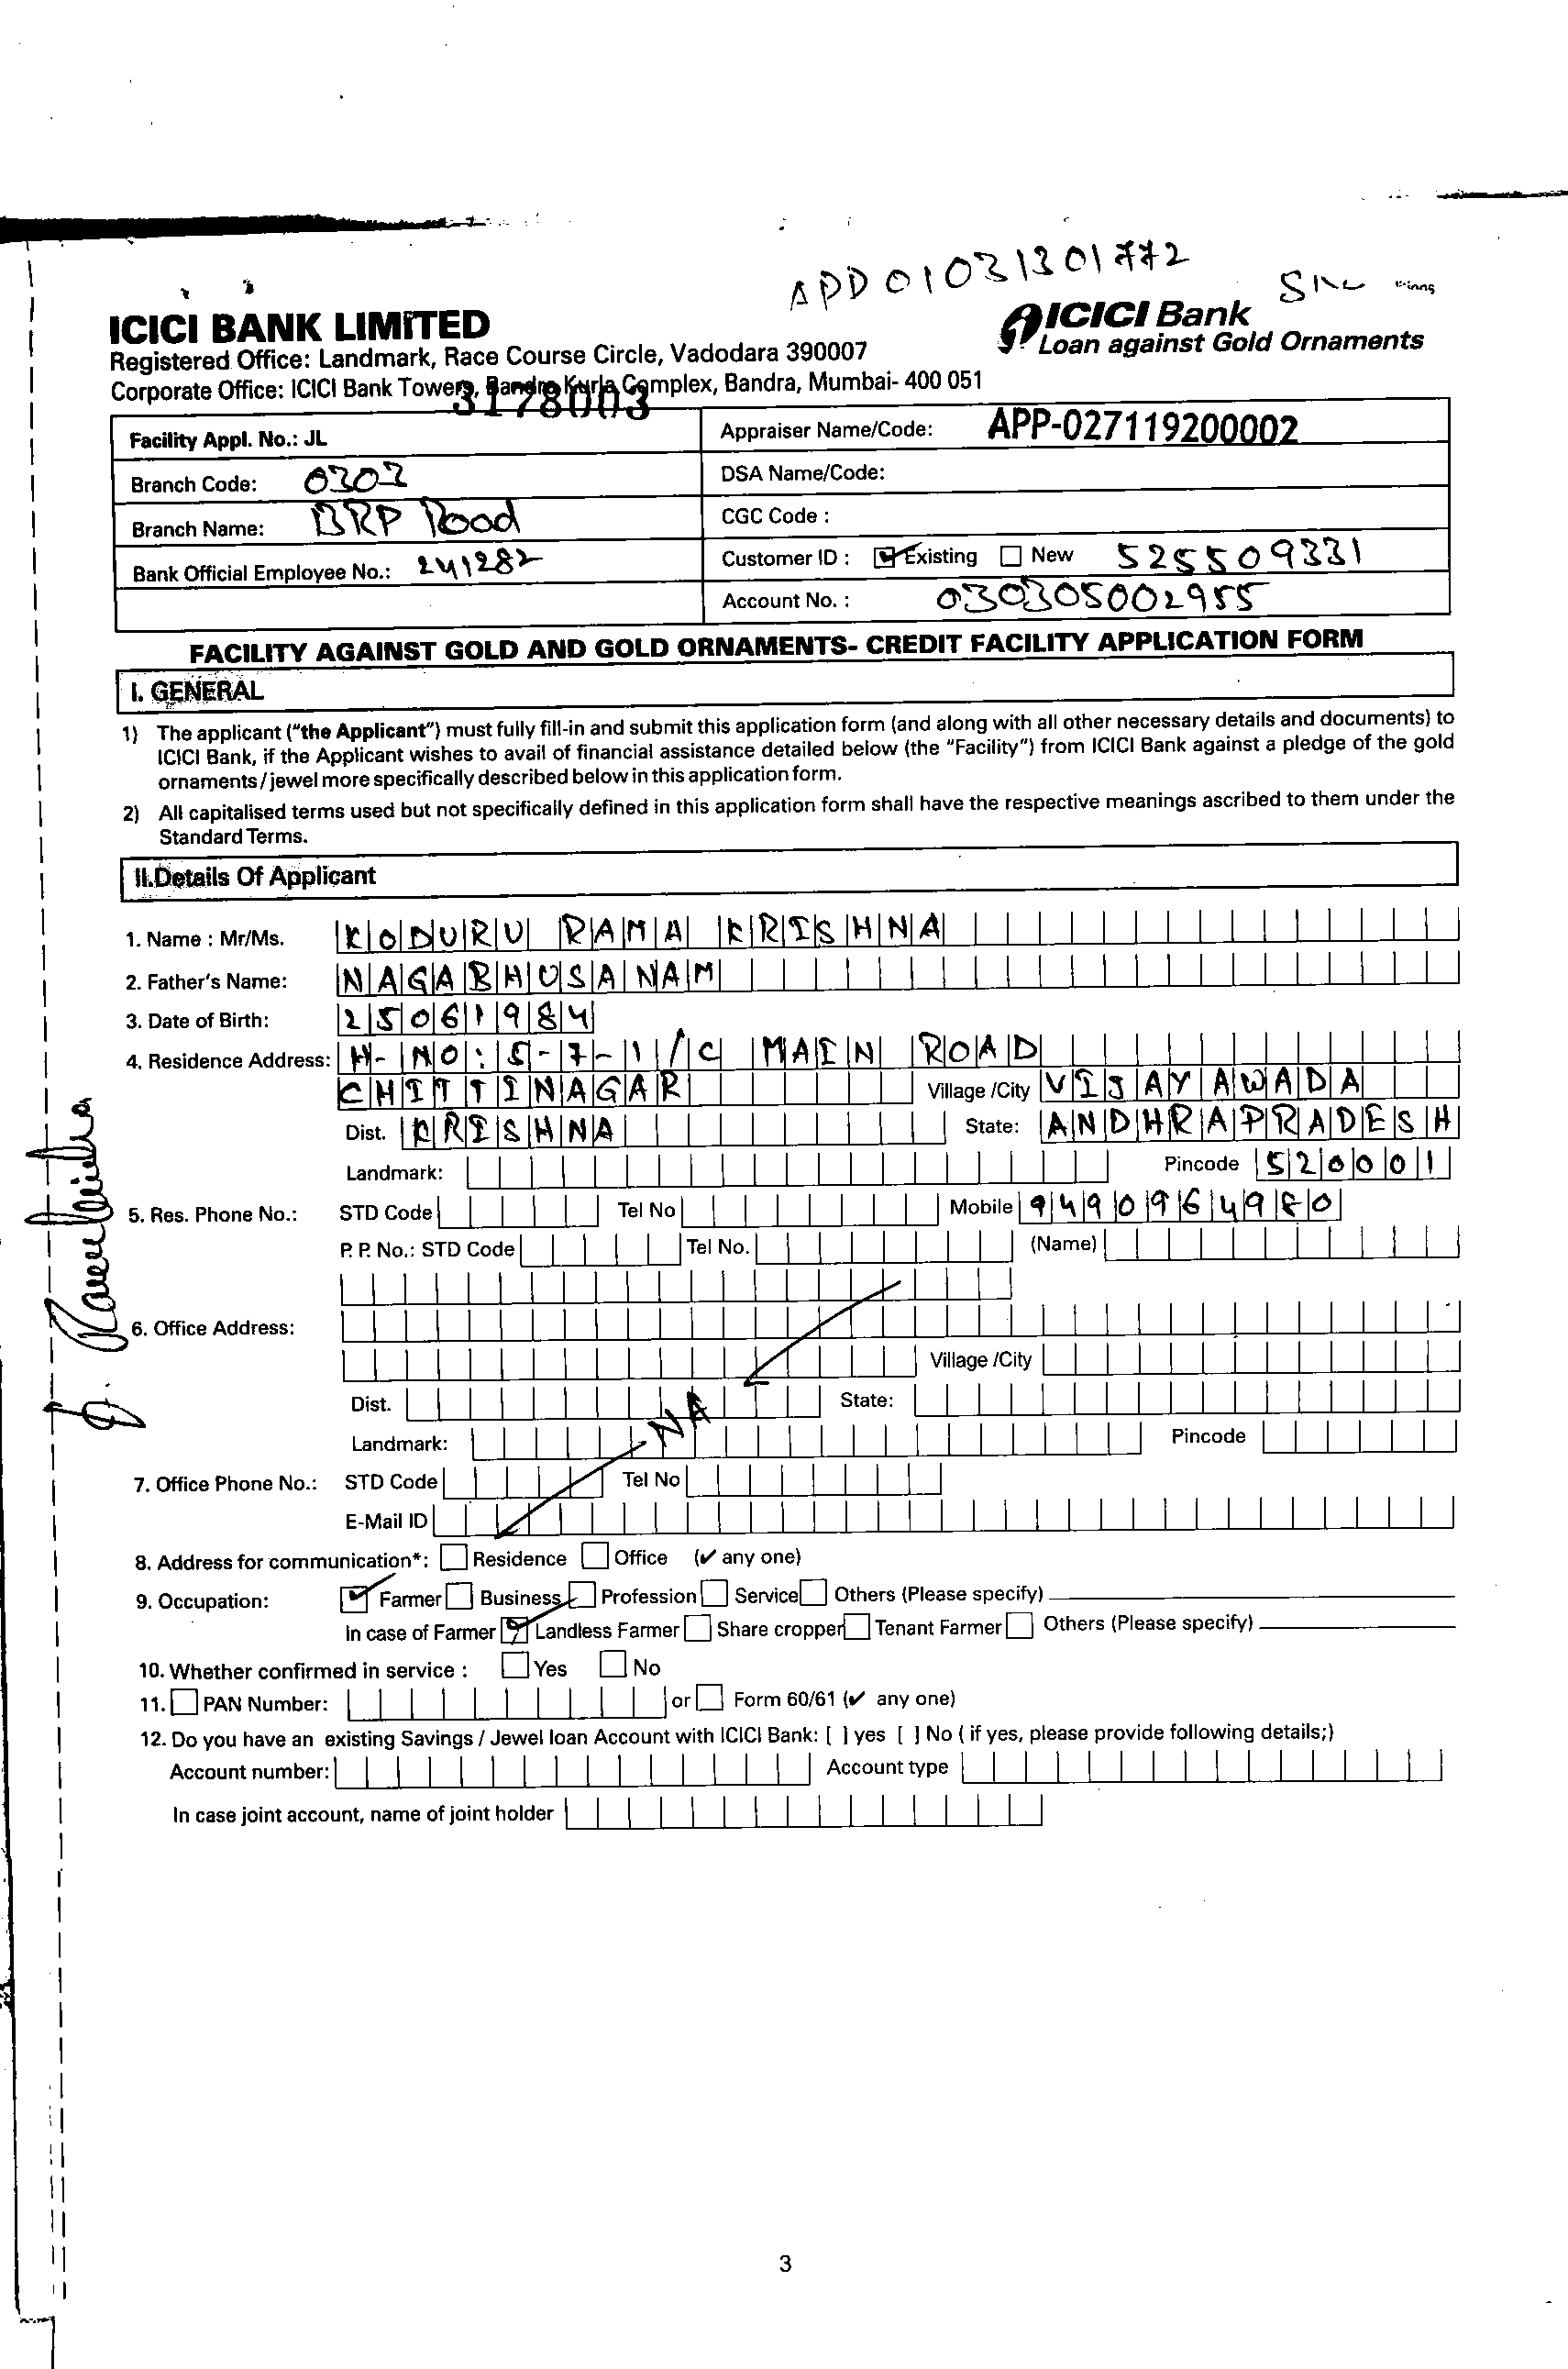 APP01031301772
ICICI BANK LIMITED
Registered Office: Landmark, Race Course Circle, Vadodara 390007
Corporate Office: ICICI Bank Towers, Bandra Kurla Complex, Bandra, Mumbai- 400 051
ICICI Bank
Loan against Gold Ornaments
3178003
Facility Appl. No.: JL
Appraiser Name/Code: APP-027119200002
Branch Code: 0303
DSA Name/Code:
Branch Name: BRP Road
CGC Code :
Bank Official Employee No.: 241282
Customer ID : Existing New 525509331
Account No. : 030305002955
FACILITY AGAINST GOLD AND GOLD ORNAMENTS- CREDIT FACILITY APPLICATION FORM
I. GENERAL
1) The applicant ("the Applicant") must fully fill-in and submit this application form (and along with all other necessary details and documents) to
ICICI Bank, if the Applicant wishes to avail of financial assistance detailed below (the "Facility") from ICICI Bank against a pledge of the gold
ornaments/jewel more specifically described below in this application form.
2) All capitalised terms used but not specifically defined in this application form shall have the respective meanings ascribed to them under the
Standard Terms.
II.Details Of Applicant
1. Name : Mr/Ms. KODURU RAMA KRISHNA
2. Father's Name: NAGABHUSANAM
3. Date of Birth: 25061984
4. Residence Address: H-NO:5-7-1/C MAIN ROAD
CHITTINAGAR Village /City VIJAYAWADA
Dist. KRISHNA State: ANDHRAPRADESH
Landmark: Pincode 520001
5. Res. Phone No.: STD Code Tel No Mobile 9490964980
P. P. No.: STD Code Tel No. (Name)
6. Office Address:
Village /City
Dist. State:
NA
Landmark: Pincode
7. Office Phone No.: STD Code Tel No
E-Mail ID
8. Address for communication*: Residence Office (✔ any one)
9. Occupation: ✔ Farmer Business Profession Service Others (Please specify)
In case of Farmer Landless Farmer Share cropper Tenant Farmer Others (Please specify)
10. Whether confirmed in service : Yes No
11. PAN Number: or Form 60/61 (✔ any one)
12. Do you have an existing Savings / Jewel loan Account with ICICI Bank: [ ] yes [ ] No ( if yes, please provide following details;)
Account number: Account type
In case joint account, name of joint holder
3